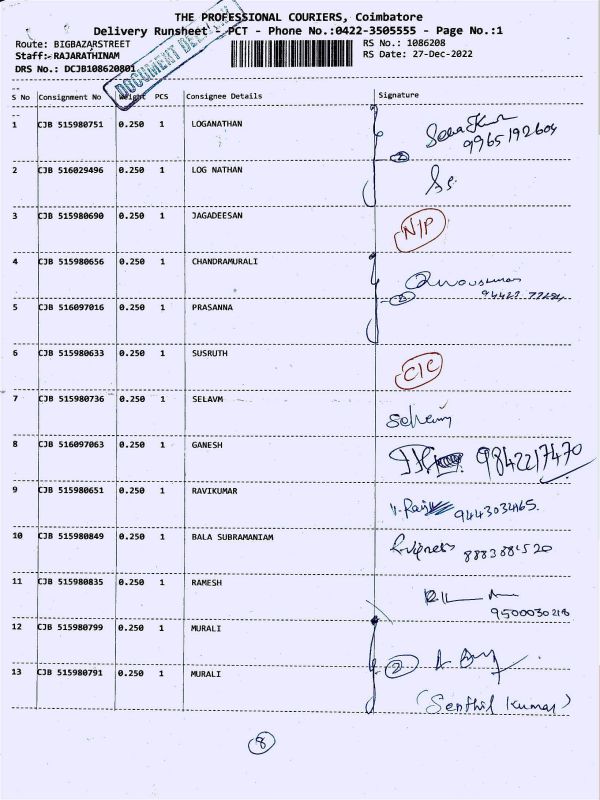 THE PROFESSIONAL COURIERS, Coimbatore
Delivery Runsheet - PCT - Phone No.:0422-3505555 - Page No.:1
Route: BIGBAZARSTREET RS No.: 1086208
Staff:- RAJARATHINAM RS Date: 27-Dec-2022
DRS No.: DCJB108620801
DOCUMENT
S No Consignment No Weight PCS Consignee Details Signature
1 CJB 515980751 0.250 1 LOGANATHAN
9965192604
2
2 CJB 516029496 0.250 1 LOG NATHAN
3 CJB 515980690 0.250 1 JAGADEESAN N/P
4 CJB 515980656 0.250 1 CHANDRAMURALI
2
5 CJB 516097016 0.250 1 PRASANNA
6 CJB 515980633 0.250 1 SUSRUTH C/C
7 CJB 515980736 0.250 1 SELAVM
8 CJB 516097063 0.250 1 GANESH 9842217470
9 CJB 515980651 0.250 1 RAVIKUMAR
10 CJB 515980849 0.250 1 BALA SUBRAMANIAM
11 CJB 515980835 0.250 1 RAMESH
9500030218
12 CJB 515980799 0.250 1 MURALI
2
13 CJB 515980791 0.250 1 MURALI
(Senthil Kumar)
8